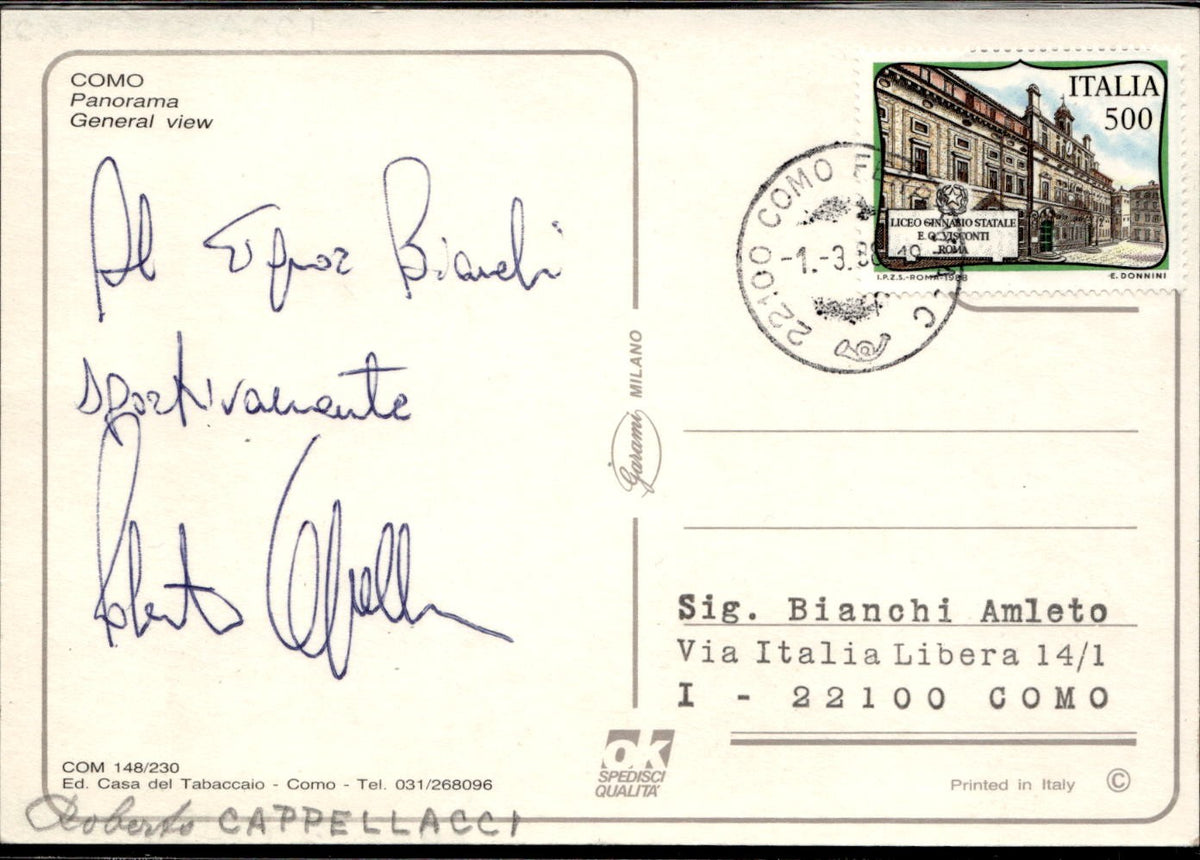 COMO
Panorama
General view
Al Signor Bianchi
sportivamente
Roberto Cappellacci
COM 148/230
Ed. Casa del Tabaccaio - Como - Tel. 031/268096
Roberto CAPPELLACCI
Garami MILANO
OK
SPEDISCI
QUALITA'
ITALIA
500
LICEO GINNASIO STATALE
E. Q. VISCONTI
ROMA
I.P.Z.S.-ROMA-1988
E. DONNINI
22100 COMO
-1.-3.
Sig. Bianchi Amleto
Via Italia Libera 14/1
I - 22100 COMO
Printed in Italy ©